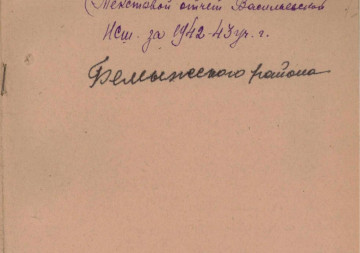 (Текстовой отчет Васильевской
нсш. за 1942-43 уч. г.
Бемыжского района